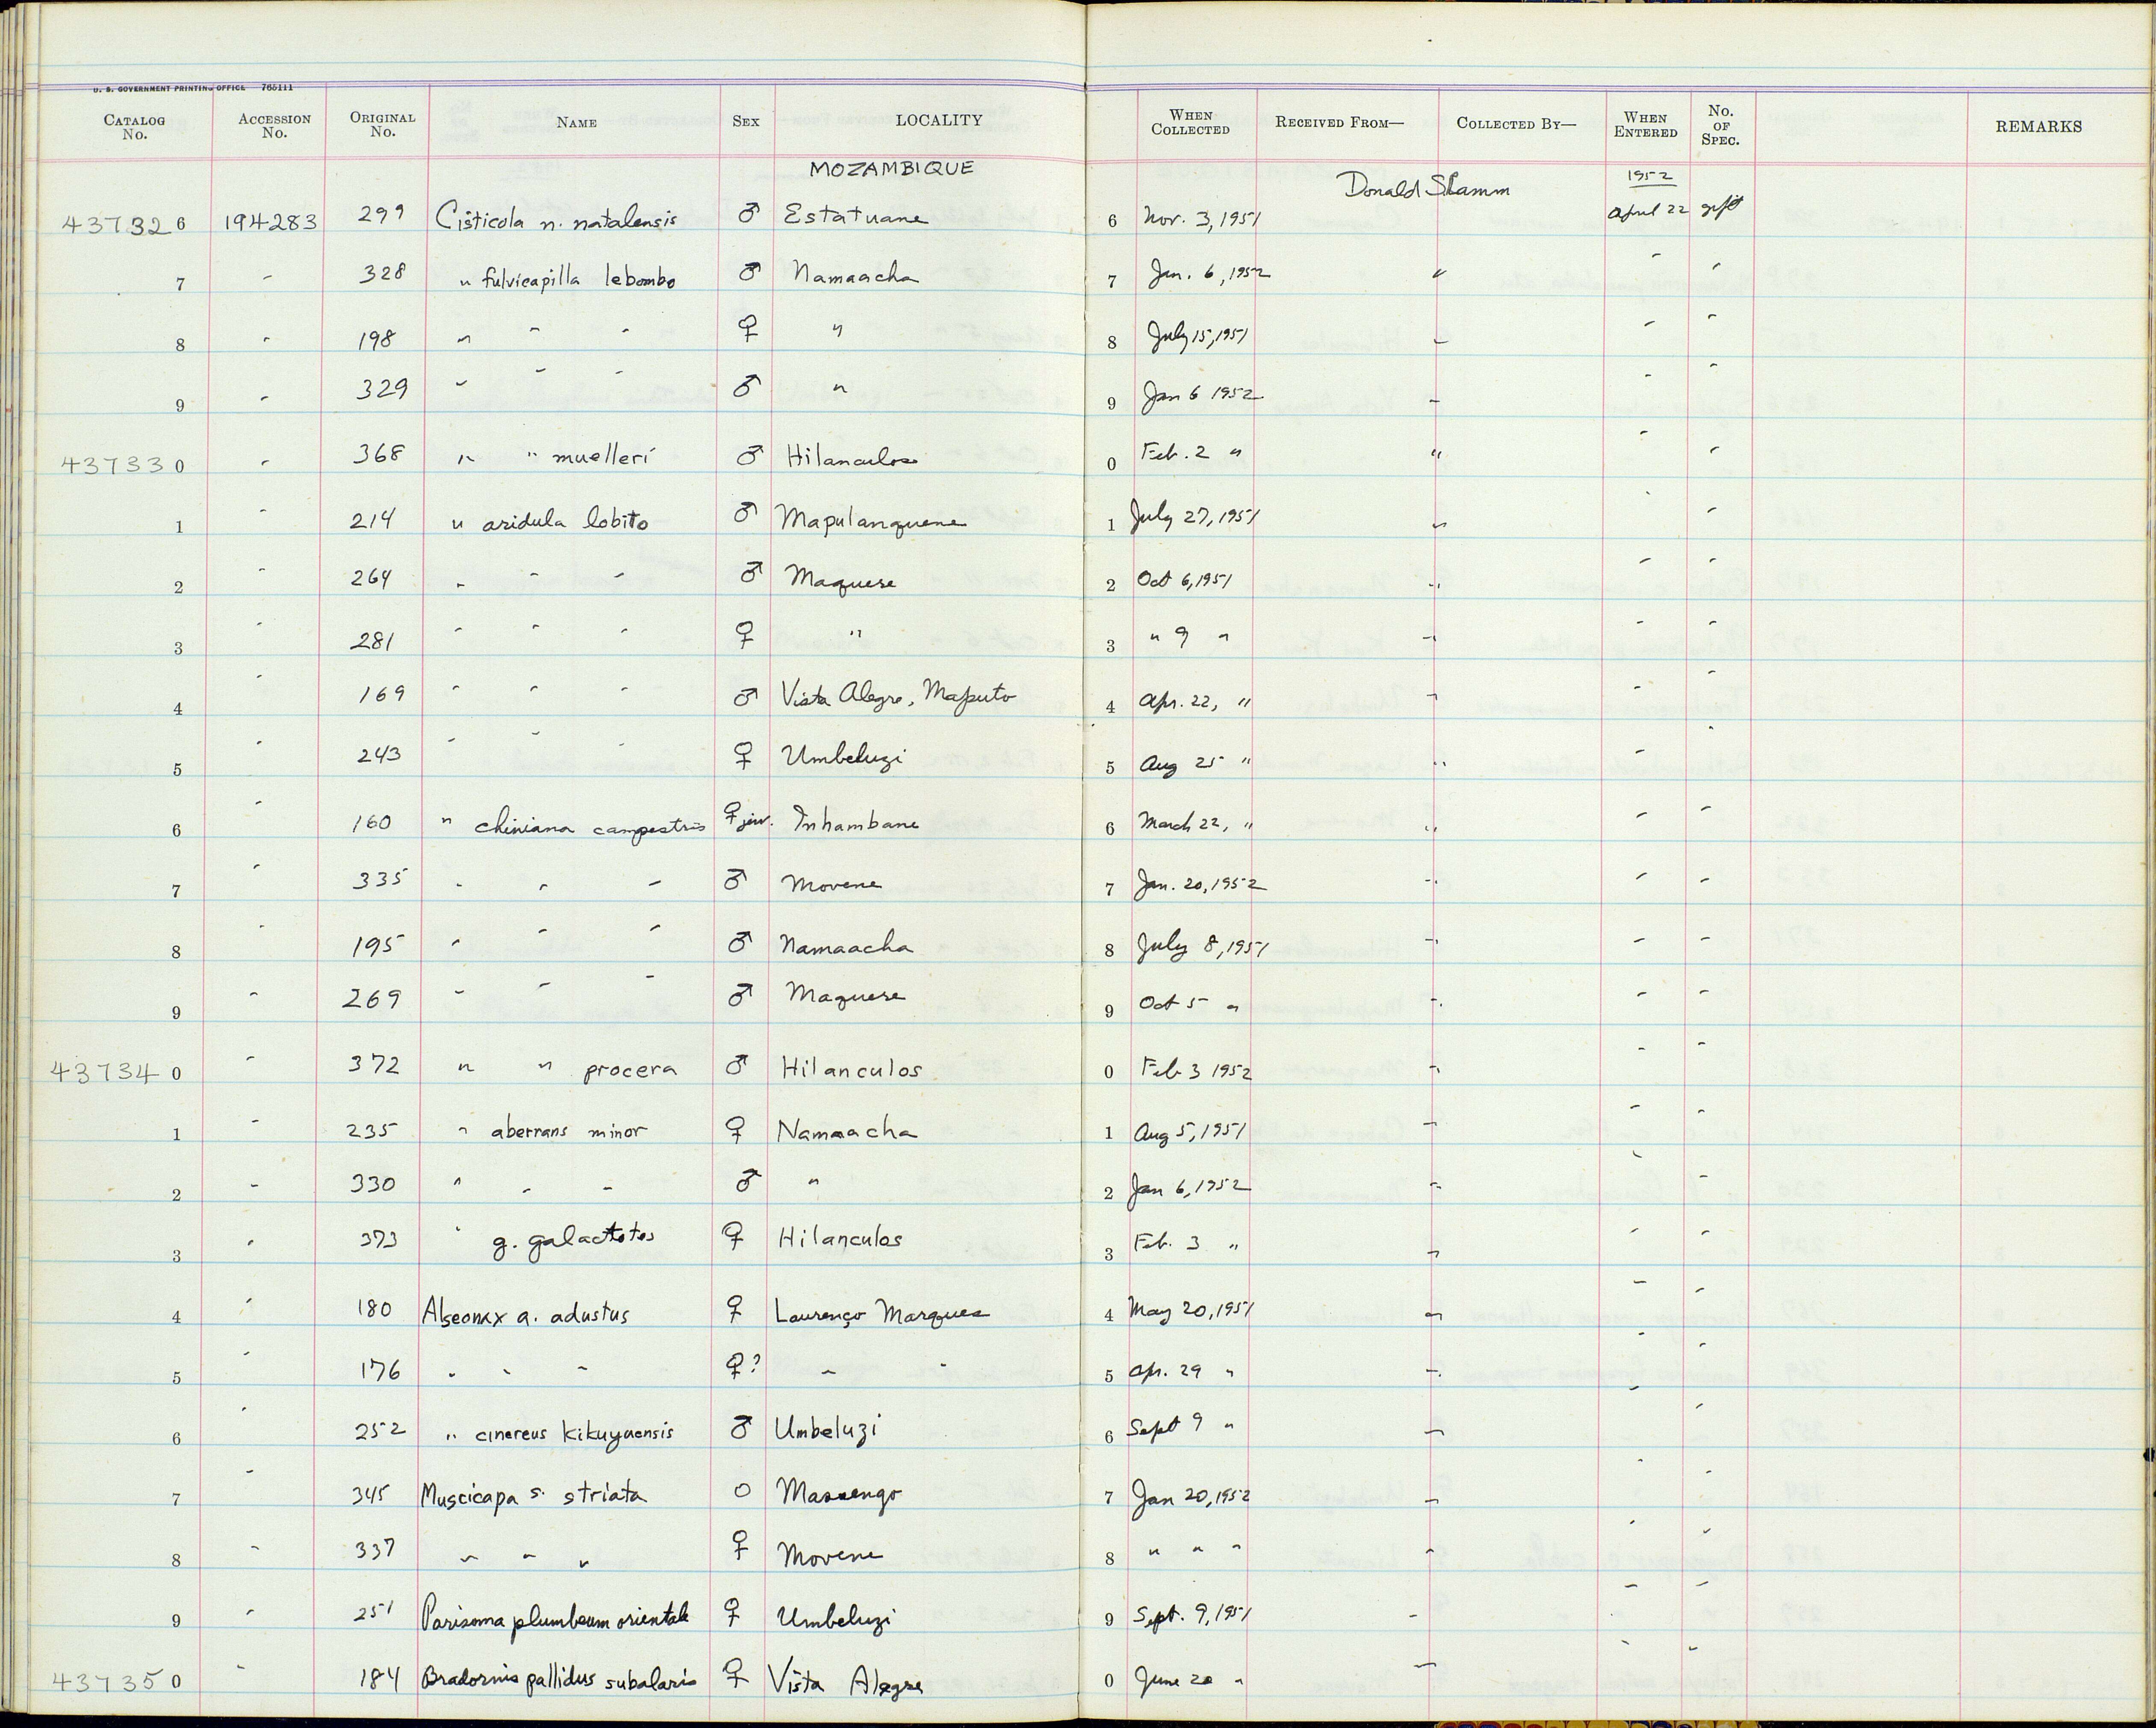 U. S. GOVERNMENT PRINTING OFFICE 765111
CATALOG No. ACCESSION No. ORIGINAL No. NAME SEX LOCALITY WHEN COLLECTED RECEIVED FROM— COLLECTED BY— WHEN ENTERED No. OF SPEC. REMARKS
MOZAMBIQUE
437326 194283 299 Cisticola n. natalensis ♂ Estatuane 6 Nov. 3, 1951 Donald 1952 April 22 gift
7 - 328 " fulvicapilla lebombo ♂ Namaacha 7 Jan. 6, 1952 " - -
8 - 198 " " " ♀ " 8 July 15, 1951 " - -
9 - 329 " " " ♂ " 9 Jan 6 1952 " - -
437330 - 368 " " muelleri ♂ Hilanculos 0 Feb. 2 " " - -
1 - 214 " aridula lobito ♂ Mapulanguene 1 July 27, 1951 " - -
2 - 264 " " " ♂ Maquese 2 Oct 6, 1951 " - -
3 - 281 " " " ♀ " 3 " 9 " " - -
4 - 169 " " " ♂ Vista Alegre, Maputo 4 Apr. 22, " " - -
5 - 243 " " " ♀ Umbeluzi 5 Aug 25 " " - -
6 - 160 " chiniana campestris ♀ juv. Inhambane 6 March 22, " " - -
7 - 335 " " " ♂ Movene 7 Jan. 20, 1952 " - -
8 - 195 " " " ♂ Namaacha 8 July 8, 1951 " - -
9 - 269 " " " ♂ Maquese 9 Oct 5 " " - -
437340 - 372 " " procera ♂ Hilanculos 0 Feb 3 1952 " - -
1 - 235 " aberrans minor ♀ Namaacha 1 Aug 5, 1951 " - -
2 - 330 " " " ♂ " 2 Jan 6, 1952 " - -
3 - 373 " g. galactotes ♀ Hilanculos 3 Feb. 3 " " - -
4 - 180 Alseonax a. adustus ♀ Laurenço Marques 4 May 20, 1951 " - -
5 - 176 " " " ♀? " " 5 Apr. 29 " " - -
6 - 252 " cinereus kikuyuensis ♂ Umbeluzi 6 Sept 9 " " - -
7 - 345 Muscicapa s. striata O 7 Jan 20, 1952 " - -
8 - 337 " " " ♀ Movene 8 " " " " - -
9 - 251 Parisoma plumbeum orientale ♀ Umbeluzi 9 Sept. 9, 1951 " - -
437350 - 184 Bradornis pallidus subalaris ♀ Vista Alegre 0 June 20 " " - -